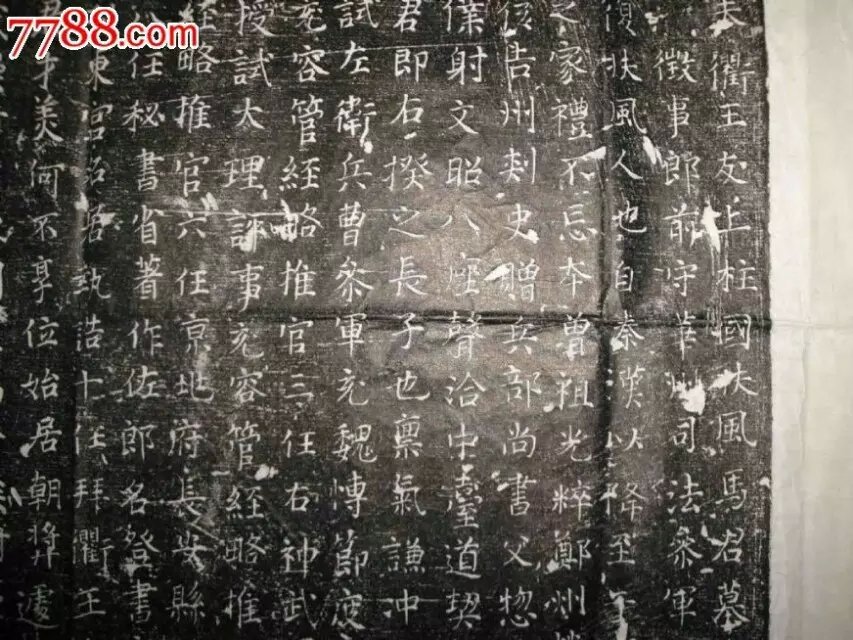 7788.com
夫衢王友上柱國扶風馬君墓
徵事郎前守華州司法參軍
扶風人也自秦漢以降至
之家禮不忘本曾祖光粹鄭州
告州刺史贈兵部尚書父惣
僕射文昭八座聲洽中臺道契
君即右揆之長子也稟氣謙沖
試左衛兵曹參軍充魏博節度
充容管經略推官三任右神武
授試大理評事充容管經略推
經略推官六任京兆府長安縣
任秘書省著作佐郎名登書
東宮 執誥十任拜衢王
美何不享位始居朝獎遽